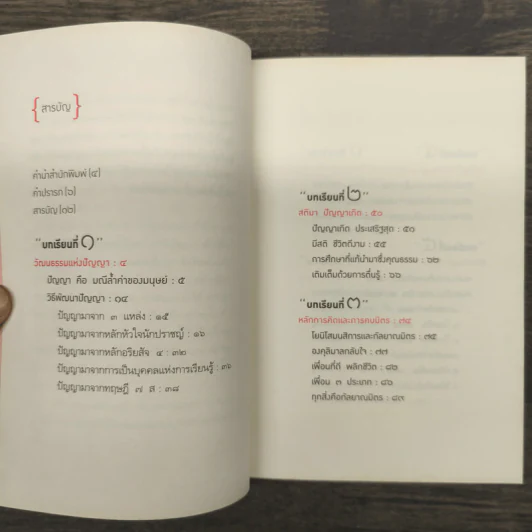 { สารบัญ }
คำนำสำนักพิมพ์ [๔]
คำปรารภ [๖]
สารบัญ [๑๒]
"บทเรียนที่ ๑"
วัฒนธรรมแห่งปัญญา : ๔
ปัญญา คือ มณีล้ำค่าของมนุษย์ : ๕
วิธีพัฒนาปัญญา : ๑๔
ปัญญามาจาก ๓ แหล่ง : ๑๕
ปัญญามาจากหลักหัวใจนักปราชญ์ : ๑๖
ปัญญามาจากหลักอริยสัจ ๔ : ๓๒
ปัญญามาจากการเป็นบุคคลแห่งการเรียนรู้ : ๓๖
ปัญญามาจากทฤษฎี ๗ ส : ๓๘
"บทเรียนที่ ๒"
สติมา ปัญญาเกิด : ๕๐
ปัญญาเกิด ประเสริฐสุด : ๕๐
มีสติ ชีวิตดีงาม : ๕๕
การศึกษาที่แท้นำมาซึ่งคุณธรรม : ๖๒
เติมเต็มด้วยการตื่นรู้ : ๖๖
"บทเรียนที่ ๓"
หลักการคิดและการคบมิตร : ๗๔
โยนิโสมนสิการและกัลยาณมิตร : ๗๕
องคุลิมาลกลับใจ : ๗๗
เพื่อนที่ดี พลิกชีวิต : ๘๒
เพื่อน ๓ ประเภท : ๘๖
ทุกสิ่งคือกัลยาณมิตร : ๘๗